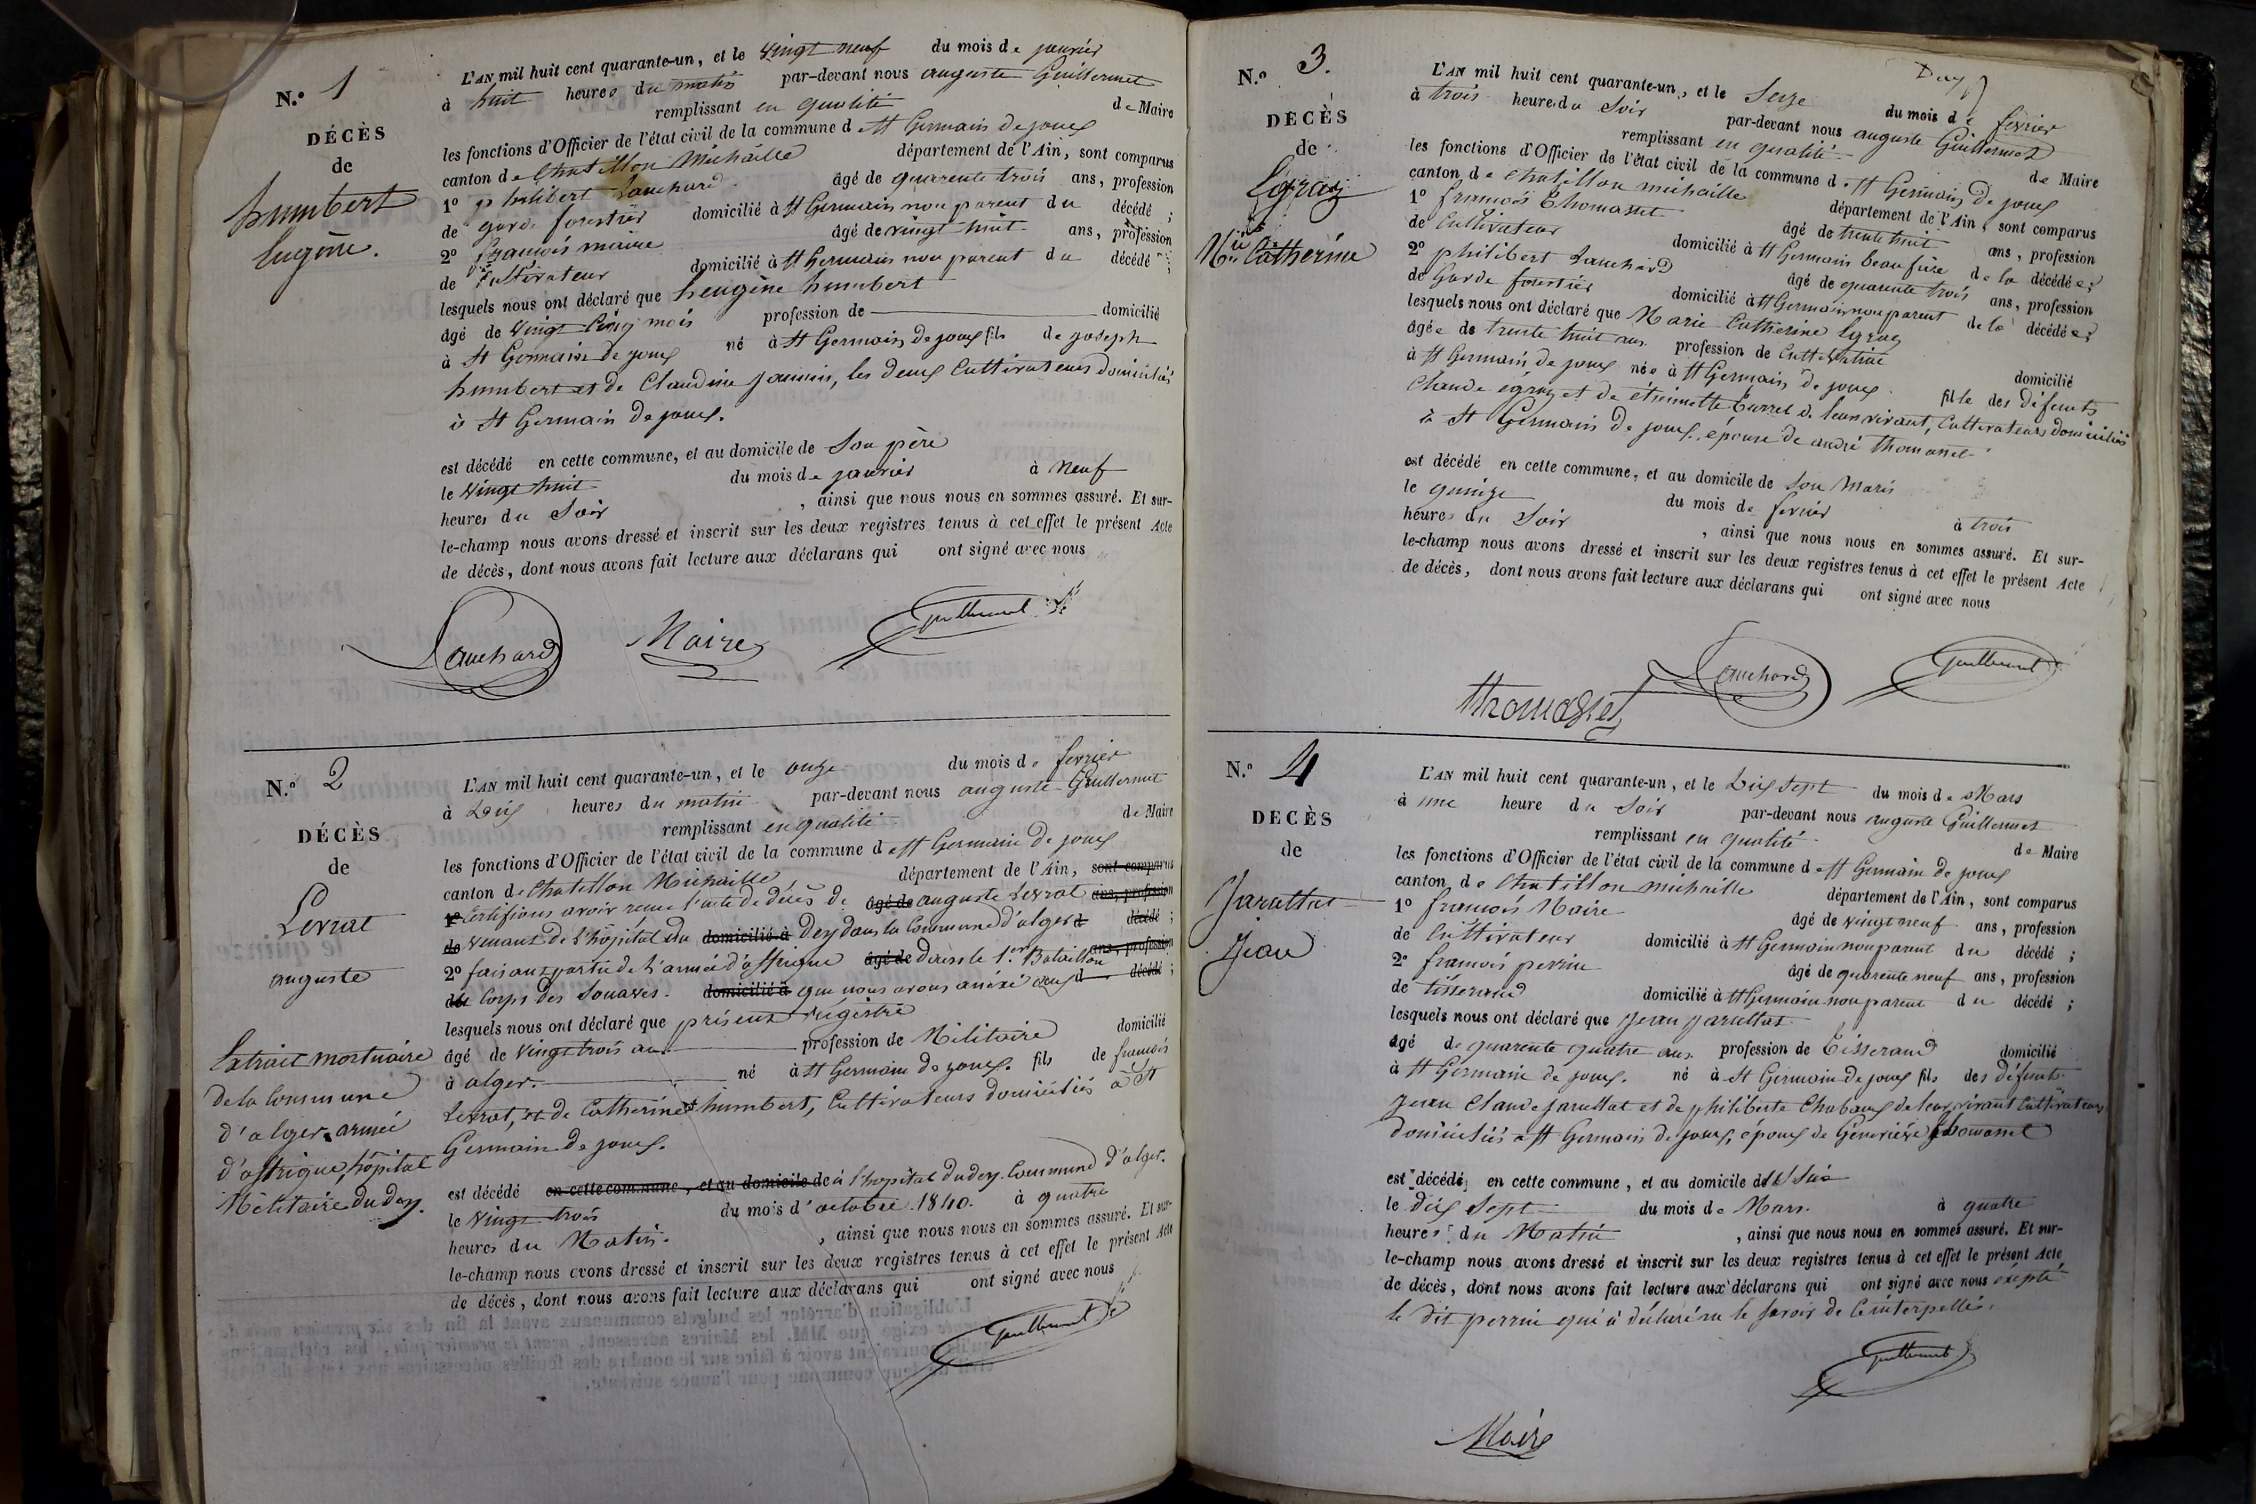 N.o 1
DÉCÈS
de
humbert
Eugène.
L'AN mil huit cent quarante-un, et le vingt neuf du mois de janvier
à huit heures du matin par-devant nous auguste Guillermet
remplissant en qualité de Maire
les fonctions d'Officier de l'état civil de la commune d e St Germain de joux
canton de Chatillon Michaille département de l'Ain, sont comparus
1o philibert Lauchard âgé de quarente trois ans, profession
de garde forestier domicilié à St Germain non parent du décédé ;
2o francois maire âgé de vingt huit ans, profession
de Cultivateur domicilié à St Germain non parent du décédé ;
lesquels nous ont déclaré que heugène humbert
âgé de vingt Cinq mois profession de domicilié
à St Germain de joux né à St Germain de joux fils de joseph
humbert et de Claudine jannin, les deux Cultivateurs domiciliés
à St Germain de joux.
est décédé en cette commune, et au domicile de Son père
le vingt huit du mois de janvier à Neuf
heures du Soir , ainsi que nous nous en sommes assuré. Et sur-
le-champ nous avons dressé et inscrit sur les deux registres tenus à cet effet le présent Acte
de décès, dont nous avons fait lecture aux déclarans qui ont signé avec nous
Lauchard Maire Guillermet
N.o 2
DÉCÈS
de
Levrat
auguste
Extrait mortuaire
de la Commune
d'alger armée
d'affrique, hôpital
Militaire du dey.
L'AN mil huit cent quarante-un, et le onze du mois de fevrier
à Dix heures du matin par-devant nous auguste Guillermet
remplissant en qualité de Maire
les fonctions d'Officier de l'état civil de la commune d e St Germain de joux
canton de Chatillon Michaille département de l'Ain, sont comparus
1o Certifions avoir reçu l'acte de décès de âgé de auguste Levrat ans, profession
de venant de l'hôpital du domicilié à Dey dans la Commune d'alger d décédé ;
2o faisant partie de l'armée d'affrique âgé de dans le 1er Bataillon ans, profession
de Corps des Souaves. domicilié à que nous avons anéxé aux d décédé ;
lesquels nous ont déclaré que présent régistre
âgé de vingt trois ans profession de Militaire domicilié
à alger. né à St Germain de joux. fils de francois
Levrat, et de Catherine humbert, Cultivateurs domiciliés à St
Germain de joux.
est décédé en cette commune, et au domicile de à l'hopital du dey. Commune d'alger.
le vingt trois du mois d'octobre 1840. à quatre
heures du Matin. , ainsi que nous nous en sommes assuré. Et sur-
le-champ nous avons dressé et inscrit sur les deux registres tenus à cet effet le présent Acte
de décès, dont nous avons fait lecture aux déclarans qui ont signé avec nous
Guillermet
N.o 3.
DÉCÈS
de
Egraz
Mie Catherine
L'AN mil huit cent quarante-un, et le Seize du mois de fevrier
à trois heures du Soir par-devant nous auguste Guillermet
remplissant en qualité de Maire
les fonctions d'Officier de l'état civil de la commune d e St Germain de joux
canton de Chatillon michaille département de l'Ain, sont comparus
1o francois Thomasset âgé de trente huit ans, profession
de Cultivateur domicilié à St Germain beau frère de la décédée ;
2o philibert Lauchard âgé de quarente trois ans, profession
de Garde forestier domicilié à St Germain non parent de la décédée ;
lesquels nous ont déclaré que Marie Catherine Egraz
âgée de trente huit ans profession de Cultivatrice domicilié
à St Germain de joux née à St Germain de joux fille des défunts
Claude égraz et de étiennette burret d. leur vivant, Cultivateurs domiciliés
à St Germain de joux, épouse de andré thomasset
est décédé en cette commune, et au domicile de Son Maris
le quinze du mois de fevrier à trois
heures du Soir , ainsi que nous nous en sommes assuré. Et sur-
le-champ nous avons dressé et inscrit sur les deux registres tenus à cet effet le présent Acte
de décès, dont nous avons fait lecture aux déclarans qui ont signé avec nous
Thomasset Lauchard Guillermet
N.o 4
DECÈS
de
Jarattat
Jean
L'AN mil huit cent quarante-un, et le Dix Sept du mois de Mars
à une heure du Soir par-devant nous auguste Guillermet
remplissant en qualité de Maire
les fonctions d'Officier de l'état civil de la commune d e St Germain de joux
canton de Chatillon michaille département de l'Ain, sont comparus
1o francois Maire âgé de vingt neuf ans, profession
de Cultivateur domicilié à St Germain non parent du décédé ;
2o francois perrin âgé de quarente neuf ans, profession
de tisserand domicilié à St Germain non parent du décédé ;
lesquels nous ont déclaré que Jean jarattat
âgé de quarente quatre ans profession de Tisserand domicilié
à St Germain de joux. né à St Germain de joux fils des défunts
jean Claude jarattat et de philiberte Chabaux de leur vivant Cultivateurs
domiciliés à St Germain de joux, époux de Geneviève thomasset
est décédé en cette commune, et au domicile de
le dix Sept du mois de Mars. à quatre
heures du Matin , ainsi que nous nous en sommes assuré. Et sur-
le-champ nous avons dressé et inscrit sur les deux registres tenus à cet effet le présent Acte
de décès, dont nous avons fait lecture aux déclarans qui ont signé avec nous exépté
le dit perrin qui à déclaré ne le savoir de ce interpellé.
Guillermet
Maire